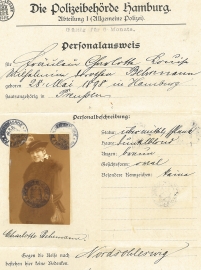 Die Polizeibehörde Hamburg.
Abteilung I (Allgemeine Polizei).
Personalausweis
für Fräulein Charlotte Louise
Wilhelmine Dorothea Behrmann
geboren 28. Mai 1898 in Hamburg
Staatsangehörig in Preußen
Personalbeschreibung:
Statur:
Haar: dunkelblond
Augen: braun
Gesichtsform: oval
Besondere Kennzeichen: keine
Charlotte Behrmann
Gegen die Reise nach Nordschleswig
bestehen hier keine Bedenken.